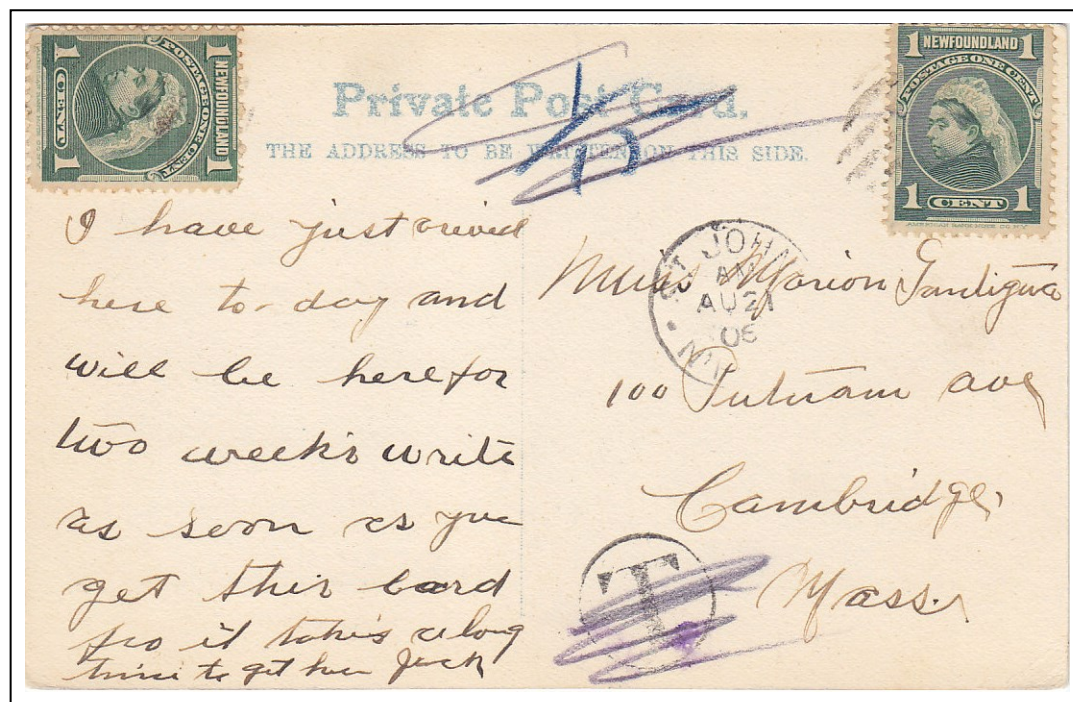 1 NEWFOUNDLAND 1
POSTAGE ONE CENT
1 CENT 1
Private Post Card.
THE ADDRESS TO BE WRITTEN ON THIS SIDE.
1 NEWFOUNDLAND 1
POSTAGE ONE CENT
1 CENT 1
ST JOHN
AM
AU 21
06
I have just
here to-day and
will be here for
two week's write
as soon as you
get this card
it take's a long
time to get here Jack
Miss Marion
100 Putnam ave
Cambridge,
Mass.
T